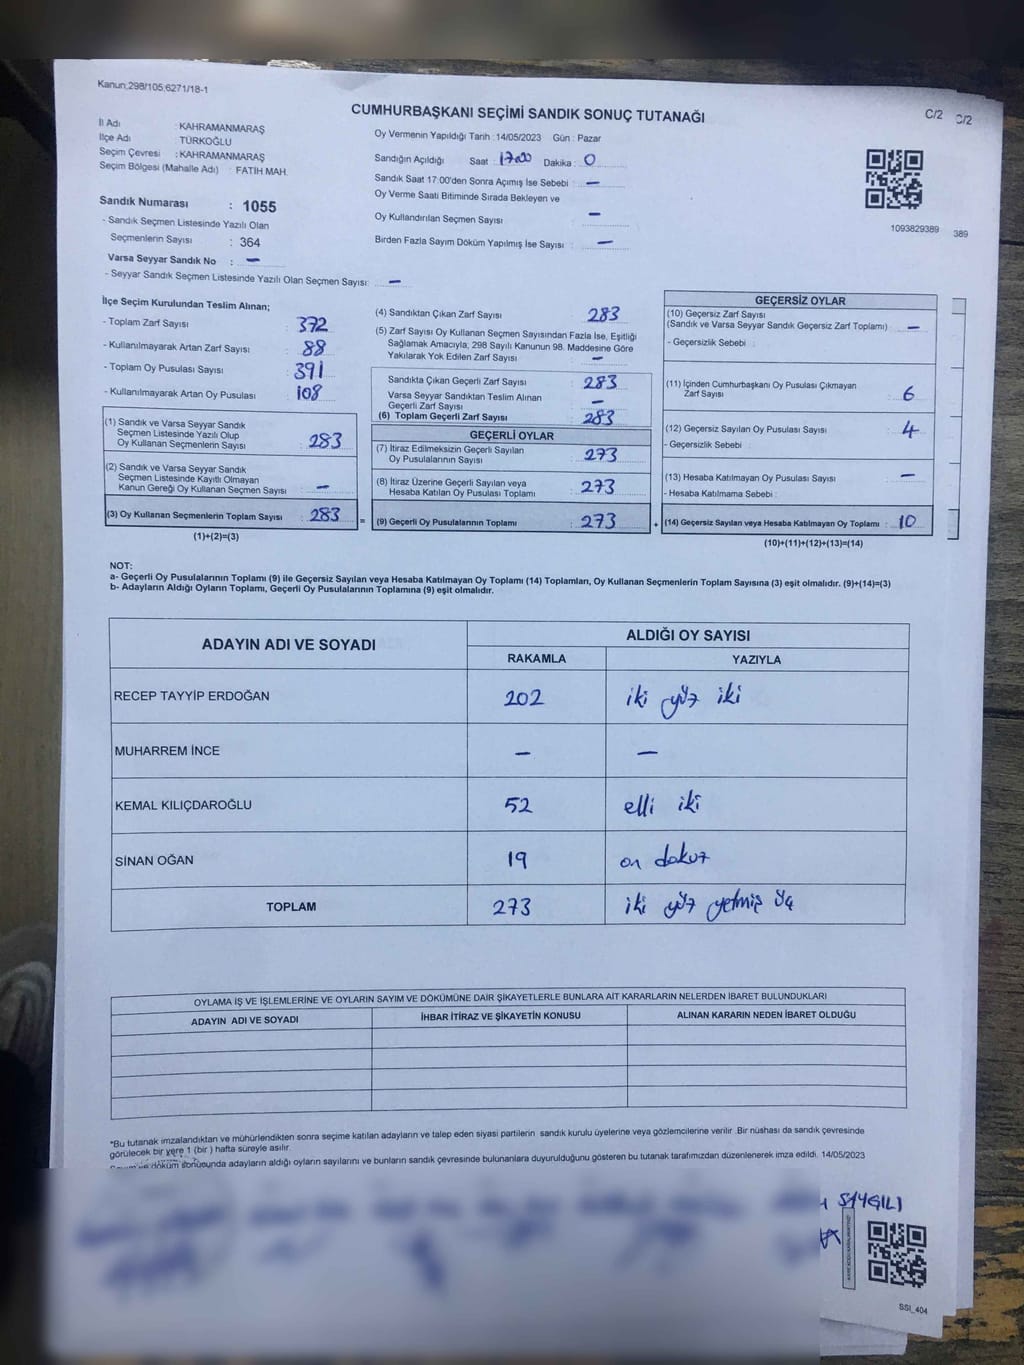 Kanun:298/105;6271/18-1
C/2 C/2
CUMHURBAŞKANI SEÇİMİ SANDIK SONUÇ TUTANAĞI
İl Adı : KAHRAMANMARAŞ
İlçe Adı : TÜRKOĞLU
Seçim Çevresi : KAHRAMANMARAŞ
Seçim Bölgesi (Mahalle Adı) : FATİH MAH.
Sandık Numarası : 1055
- Sandık Seçmen Listesinde Yazılı Olan
Seçmenlerin Sayısı : 364
Varsa Seyyar Sandık No : —
- Seyyar Sandık Seçmen Listesinde Yazılı Olan Seçmen Sayısı: —
Oy Vermenin Yapıldığı Tarih :14/05/2023 Gün : Pazar
Sandığın Açıldığı Saat : 17:00 Dakika : 0
Sandık Saat 17:00'den Sonra Açımış İse Sebebi : —
Oy Verme Saati Bitiminde Sırada Bekleyen ve
Oy Kullandırılan Seçmen Sayısı —
Birden Fazla Sayım Döküm Yapılmış İse Sayısı : —
1093829389 389
İlçe Seçim Kurulundan Teslim Alınan;
- Toplam Zarf Sayısı : 372
- Kullanılmayarak Artan Zarf Sayısı : 88
- Toplam Oy Pusulası Sayısı : 391
- Kullanılmayarak Artan Oy Pusulası : 108
(1) Sandık ve Varsa Seyyar Sandık
Seçmen Listesinde Yazılı Olup
Oy Kullanan Seçmenlerin Sayısı : 283
(2) Sandık ve Varsa Seyyar Sandık
Seçmen Listesinde Kayıtlı Olmayan
Kanun Gereği Oy Kullanan Seçmen Sayısı : —
(3) Oy Kullanan Seçmenlerin Toplam Sayısı : 283
(1)+(2)=(3)
(4) Sandıktan Çıkan Zarf Sayısı : 283
(5) Zarf Sayısı Oy Kullanan Seçmen Sayısından Fazla İse, Eşitliği
Sağlamak Amacıyla, 298 Sayılı Kanunun 98. Maddesine Göre
Yakılarak Yok Edilen Zarf Sayısı : —
Sandıkta Çıkan Geçerli Zarf Sayısı : 283
Varsa Seyyar Sandıktan Teslim Alınan
Geçerli Zarf Sayısı : —
(6) Toplam Geçerli Zarf Sayısı : 283
GEÇERLİ OYLAR
(7) İtiraz Edilmeksizin Geçerli Sayılan
Oy Pusulalarının Sayısı : 273
(8) İtiraz Üzerine Geçerli Sayılan veya
Hesaba Katılan Oy Pusulası Toplamı : 273
= (9) Geçerli Oy Pusulalarının Toplamı : 273 +
GEÇERSİZ OYLAR
(10) Geçersiz Zarf Sayısı
(Sandık ve Varsa Seyyar Sandık Geçersiz Zarf Toplamı) : —
- Geçersizlik Sebebi :
(11) İçinden Cumhurbaşkanı Oy Pusulası Çıkmayan
Zarf Sayısı : 6
(12) Geçersiz Sayılan Oy Pusulası Sayısı : 4
- Geçersizlik Sebebi :
(13) Hesaba Katılmayan Oy Pusulası Sayısı : —
- Hesaba Katılmama Sebebi :
(14) Geçersiz Sayılan veya Hesaba Katılmayan Oy Toplamı : 10
(10)+(11)+(12)+(13)=(14)
NOT:
a- Geçerli Oy Pusulalarının Toplamı (9) ile Geçersiz Sayılan veya Hesaba Katılmayan Oy Toplamı (14) Toplamları, Oy Kullanan Seçmenlerin Toplam Sayısına (3) eşit olmalıdır. (9)+(14)=(3)
b- Adayların Aldığı Oyların Toplamı, Geçerli Oy Pusulalarının Toplamına (9) eşit olmalıdır.
ADAYIN ADI VE SOYADI ALDIĞI OY SAYISI
RAKAMLA YAZIYLA
RECEP TAYYİP ERDOĞAN 202 iki yüz iki
MUHARREM İNCE — —
KEMAL KILIÇDAROĞLU 52 elli iki
SİNAN OĞAN 19 on dokuz
TOPLAM 273 iki yüz yetmiş üç
OYLAMA İŞ VE İŞLEMLERİNE VE OYLARIN SAYIM VE DÖKÜMÜNE DAİR ŞİKAYETLERLE BUNLARA AİT KARARLARIN NELERDEN İBARET BULUNDUKLARI
ADAYIN ADI VE SOYADI İHBAR İTİRAZ VE ŞİKAYETİN KONUSU ALINAN KARARIN NEDEN İBARET OLDUĞU
*Bu tutanak imzalandıktan ve mühürlendikten sonra seçime katılan adayların ve talep eden siyasi partilerin sandık kurulu üyelerine veya gözlemcilerine verilir .Bir nüshası da sandık çevresinde
görülecek bir yere 1 (bir ) hafta süreyle asılır.
ve döküm sonucunda adayların aldığı oyların sayılarını ve bunların sandık çevresinde bulunanlara duyurulduğunu gösteren bu tutanak tarafımızdan düzenlenerek imza edildi. 14/05/2023
SAYGILI
SSI_404